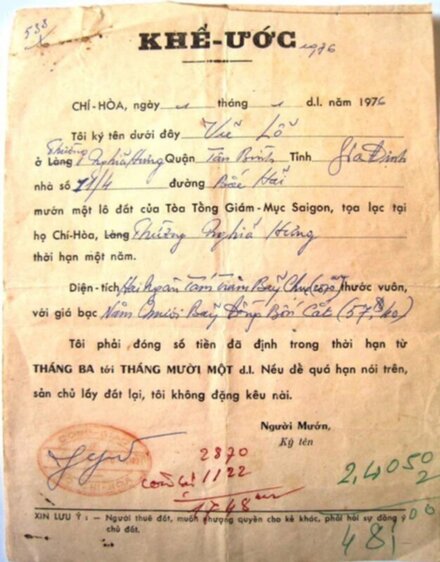 533
KHẾ-ƯỚC 1976
CHÍ-HÒA, ngày 1 tháng 1 d.l. năm 1976
Tôi ký tên dưới đây Vũ Lô
ở Làng Phường Nghĩa Hưng Quận Tân Bình Tỉnh Gia Định
nhà số 11/4 đường Bắc Hải
mướn một lô đất của Tòa Tổng Giám-Mục Saigon, tọa lạc tại
họ Chí-Hòa, Làng Phường Nghĩa Hưng
thời hạn một năm.
Diện-tích Hai Ngàn Tám trăm Bảy Chục (2870) thước vuôn,
với giá bạc Năm Mươi Bảy Đồng Bốn Cắt (57,40)
Tôi phải đóng số tiền đã định trong thời hạn từ
THÁNG BA tới THÁNG MƯỜI MỘT d.l. Nếu để quá hạn nói trên,
sản chủ lấy đất lại, tôi không đặng kêu nài.
Người Mướn,
Ký tên
2870
còn lại 1122
1748
2,4050
02
481
XIN LƯU Ý : — Người thuê đất, muốn nhượng quyền cho kẻ khác, phải hỏi sự đồng ý
chủ đất.